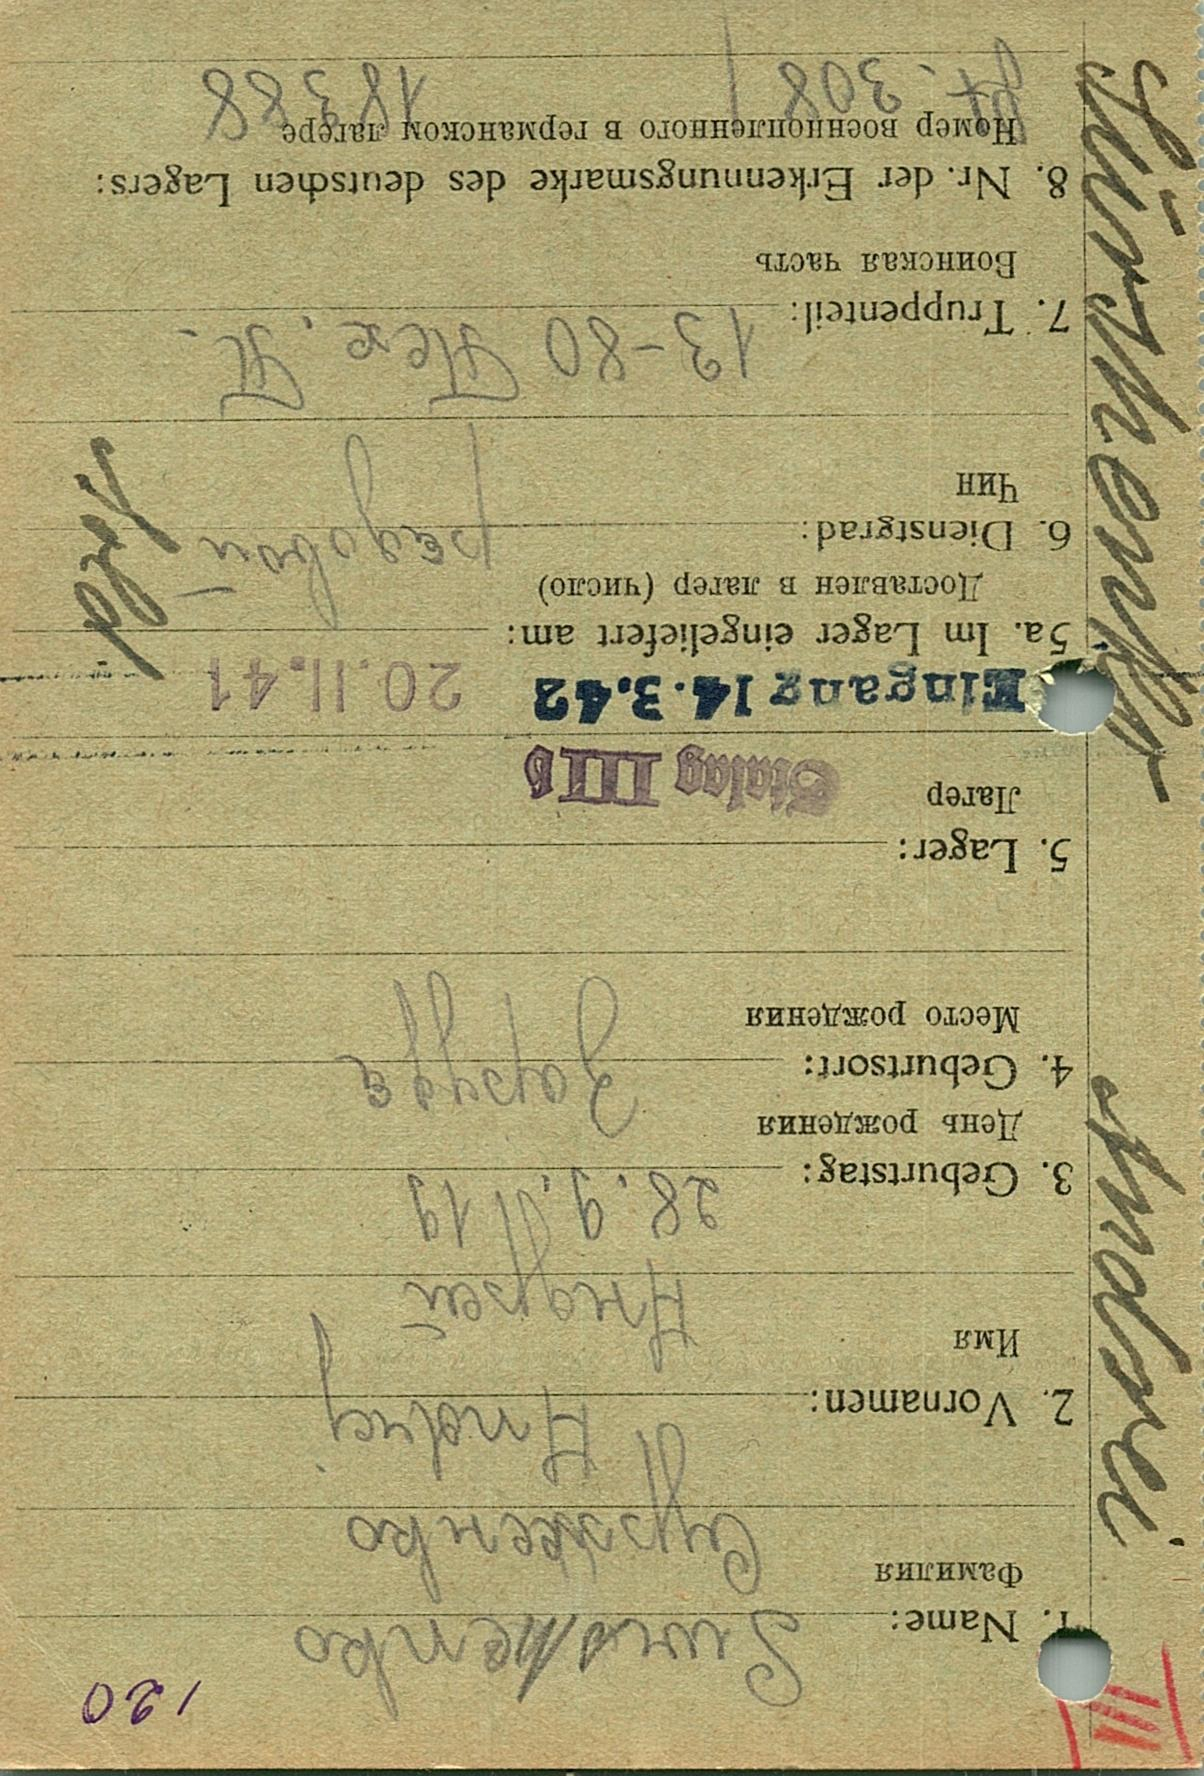 III
120
1. Name: Surshenko
Фамилия Сурженко
2. Vornamen: Andrej
Имя Андрей
3. Geburtstag: 28.9.1919
День рождения
4. Geburtsort: Заруда
Место рождения
5. Lager:
Лагер Stalag III b
Eingang 14.3.42 20.11.41
5a. Im Lager eingeliefert am:
Доставлен в лагер (число)
6. Dienstgrad: редовой
Чин
13-80
7. Truppenteil:
Воинская часть
8. Nr. der Erkennungsmarke des deutschen Lagers:
Номер военнопленного в германском лагере
308 18388
Surshenko Andrei